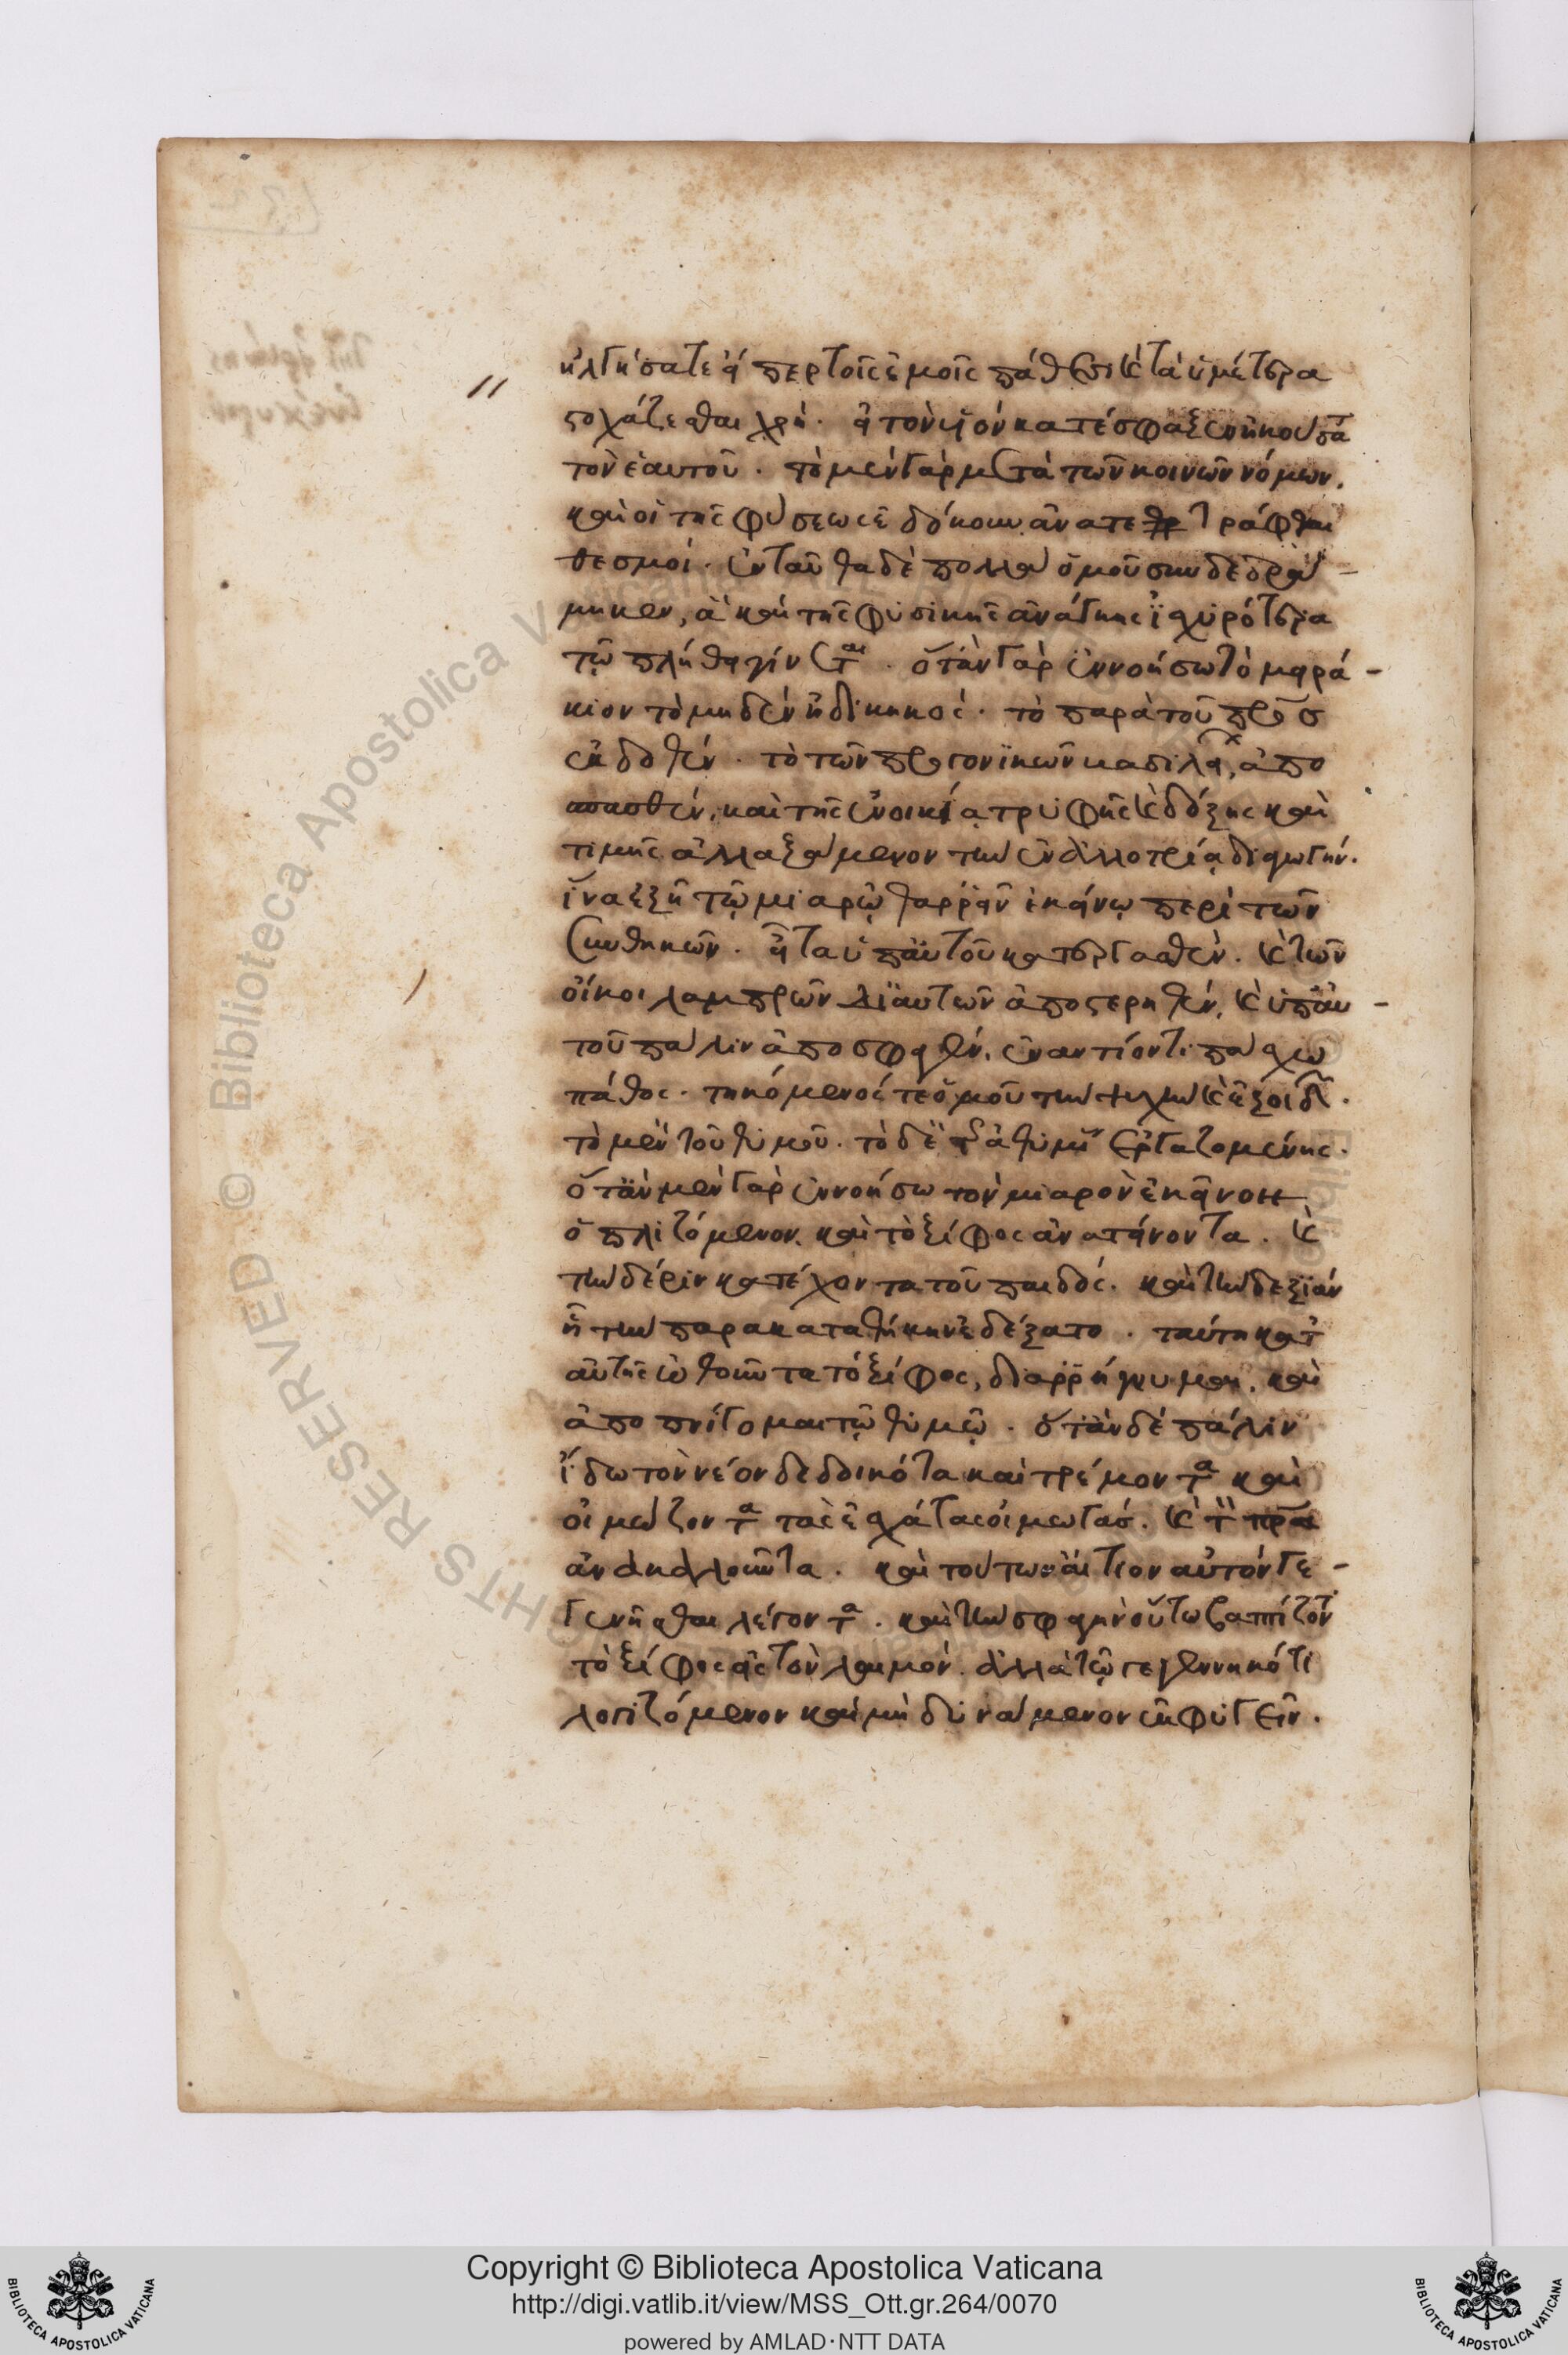 ἠλγήσατε εἴπερ τοῖς ἐμοῖς πάθεσι καὶ τὰ ὑμέτερα
στοχάζεσθαι χρή. εἰ τὸν υἱὸν κατέσφαξεν ἤκουσα
τὸν ἑαυτοῦ. τὸ μὲν γὰρ μετὰ τῶν κοινῶν νόμων.
καὶ οἱ τῆς φύσεως ἐδόκουν ἀνατετράφθαι
θεσμοί. ἐνταῦθα δὲ πολλὰ ὁμοῦ συνδεδρά-
μηκεν, ἃ καὶ τῆς φυσικῆς ἀνάγκης ἰσχυρότερα
τῷ πλήθει γίνεται. ὅταν γὰρ ἐννοήσω τὸ μειρά-
κιον τὸ μηδὲν ἠδικηκός. τὸ παρὰ τοῦ πρς
ἐκδοθέν. τὸ τῶν προγονικῶν βασιλείων ἀπο
σπασθέν. καὶ τῆς ἐν οἰκίᾳ τρυφῆς καὶ δόξης καὶ
τιμῆς ἀλλαξάμενον τὴν ἐν ἀλλοτρίᾳ διαγωγήν.
ἵνα ἐξῇ τῷ μιαρῷ θαρρεῖν ἐκείνῳ περὶ τῶν
συνθηκῶν. εἶτα ὑπ' αὐτοῦ κατεργασθέν. καὶ τῶν
οἴκοι λαμπρῶν δι' αὐτῶν ἀποστερηθέν. καὶ ὑπ' αὐ-
τοῦ πάλιν ἀποσφαγέν. ἐναντίον τι πάσχω
πάθος. τηκόμενός τε ὁμοῦ τὴν ψυχὴν καὶ ἐξοιδῶν.
τὸ μὲν τοῦ θυμοῦ. τὸ δὲ τῆς ἀθυμίας ἐργαζομένης.
ὅταν μὲν γὰρ ἐννοήσω τὸν μιαρὸν ἐκεῖνον
ὁπλιζόμενον. καὶ τὸ ξίφος ἀνατείνοντα. καὶ
τὴν δέριν κατέχοντα τοῦ παιδός. καὶ τὴν δεξιὰν
ᾗ τὴν παρακαταθήκην ἐδέξατο. ταύτῃ κατ
αὐτῆς ὠθοῦντα τὸ ξίφος, διαρρήγνυμαι. καὶ
ἀποπνίγομαι τῷ θυμῷ. ὅταν δὲ πάλιν
ἴδω τὸν νέον δεδοικότα καὶ τρέμοντα καὶ
οἰμώζοντα τὰς ἐσχάτας οἰμωγάς. καὶ τὸν πρα
ἀνακαλοῦντα. καὶ τούτων αἴτιον αὐτὸν γε-
γενῆσθαι λέγοντα. καὶ τὴν σφαγὴν οὔτω βαπτίζοντι
τὸ ξίφος εἰς τὸν λαιμόν. ἀλλὰ τῷ γεγεννηκότι
λογιζόμενον καὶ μὴ δυνάμενον ἐκφυγεῖν.
Copyright © Biblioteca Apostolica Vaticana
http://digi.vatlib.it/view/MSS_Ott.gr.264/0070
powered by AMLAD·NTT DATA